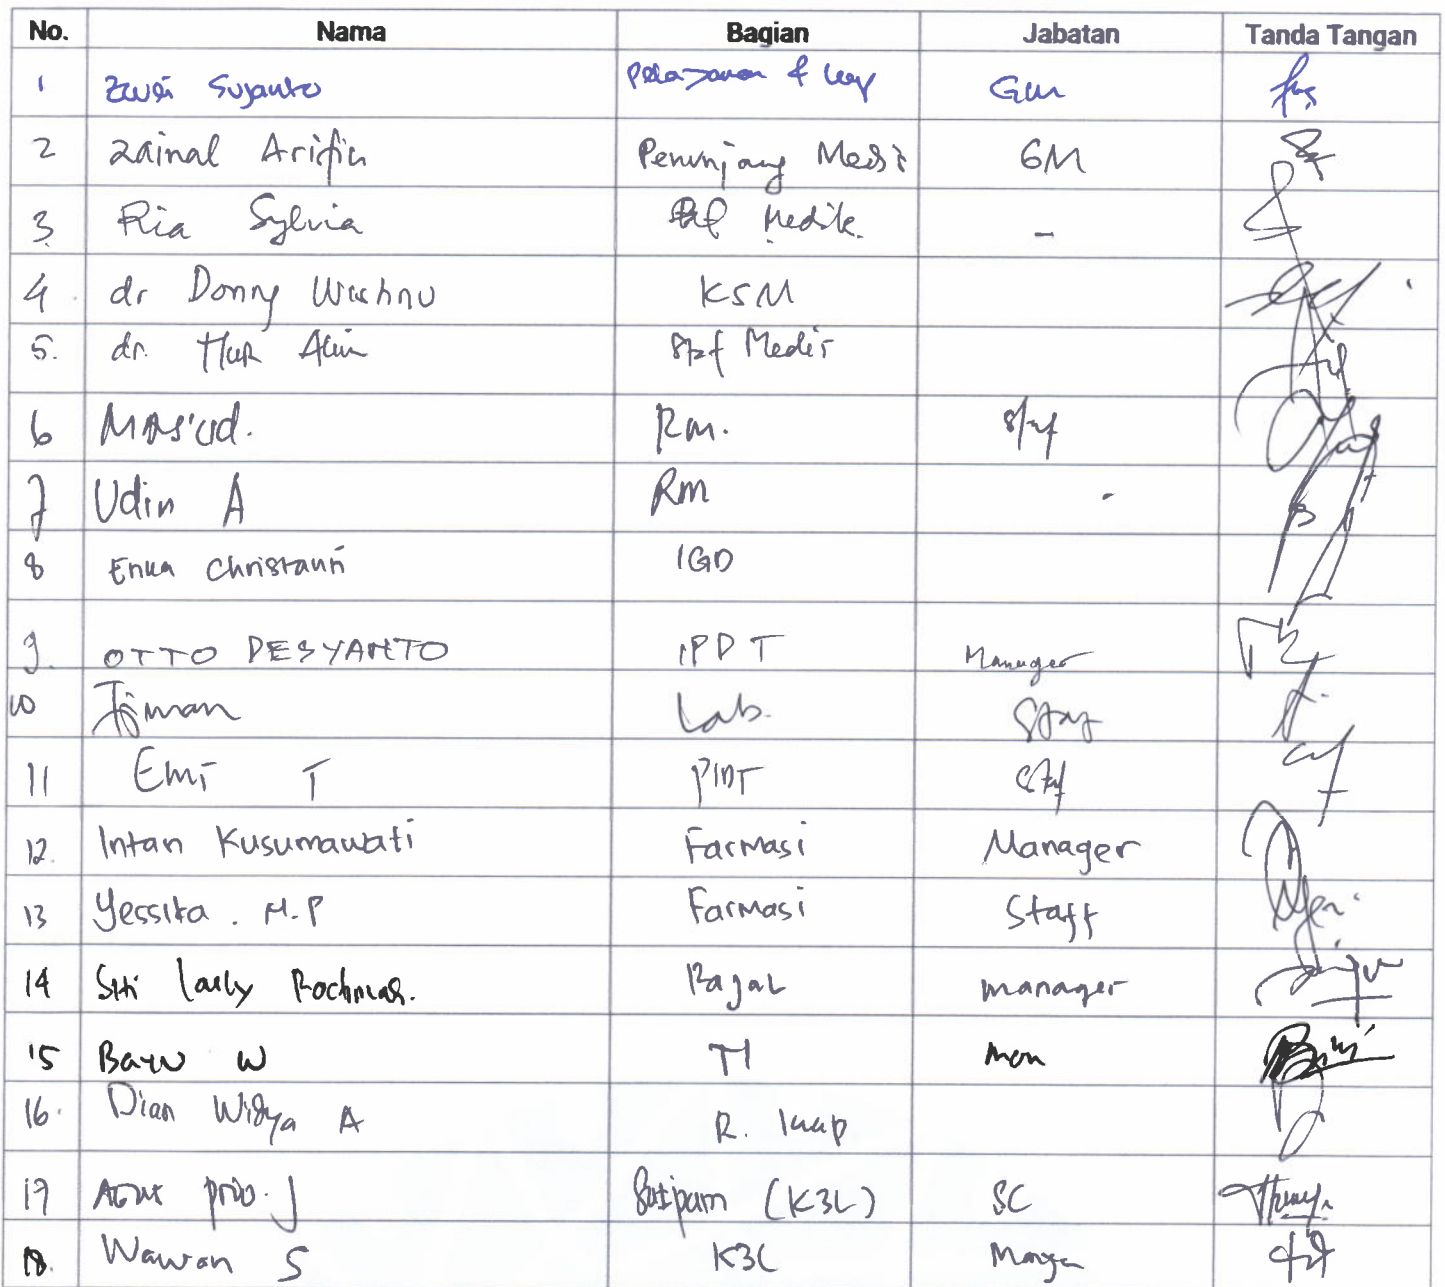 No. Nama Bagian Jabatan Tanda Tangan
1 Sujanto GM
2 Zainal Arifin Penunjang Medis GM
3 Ria Sylvia Medik. -
4 dr Donny Wishnu KSM
5. dr. Staf Medis
6 MAS'UD. RM. Staf
7 Udin A RM -
8 Erika Christanti IGD
9. OTTO DESYANTO IPDT Manager
10 Lab. Staf
11 Emi T PIDT Staf
12. Intan Kusumawati Farmasi Manager
13 Yessika . M.P Farmasi Staff
14 Siti Laily Rochmah. manager
15 Bayu W TI Man
16. Dian Widya A R. Inap
17 J Satpam (K3L) SC
18. Wawan S K3L